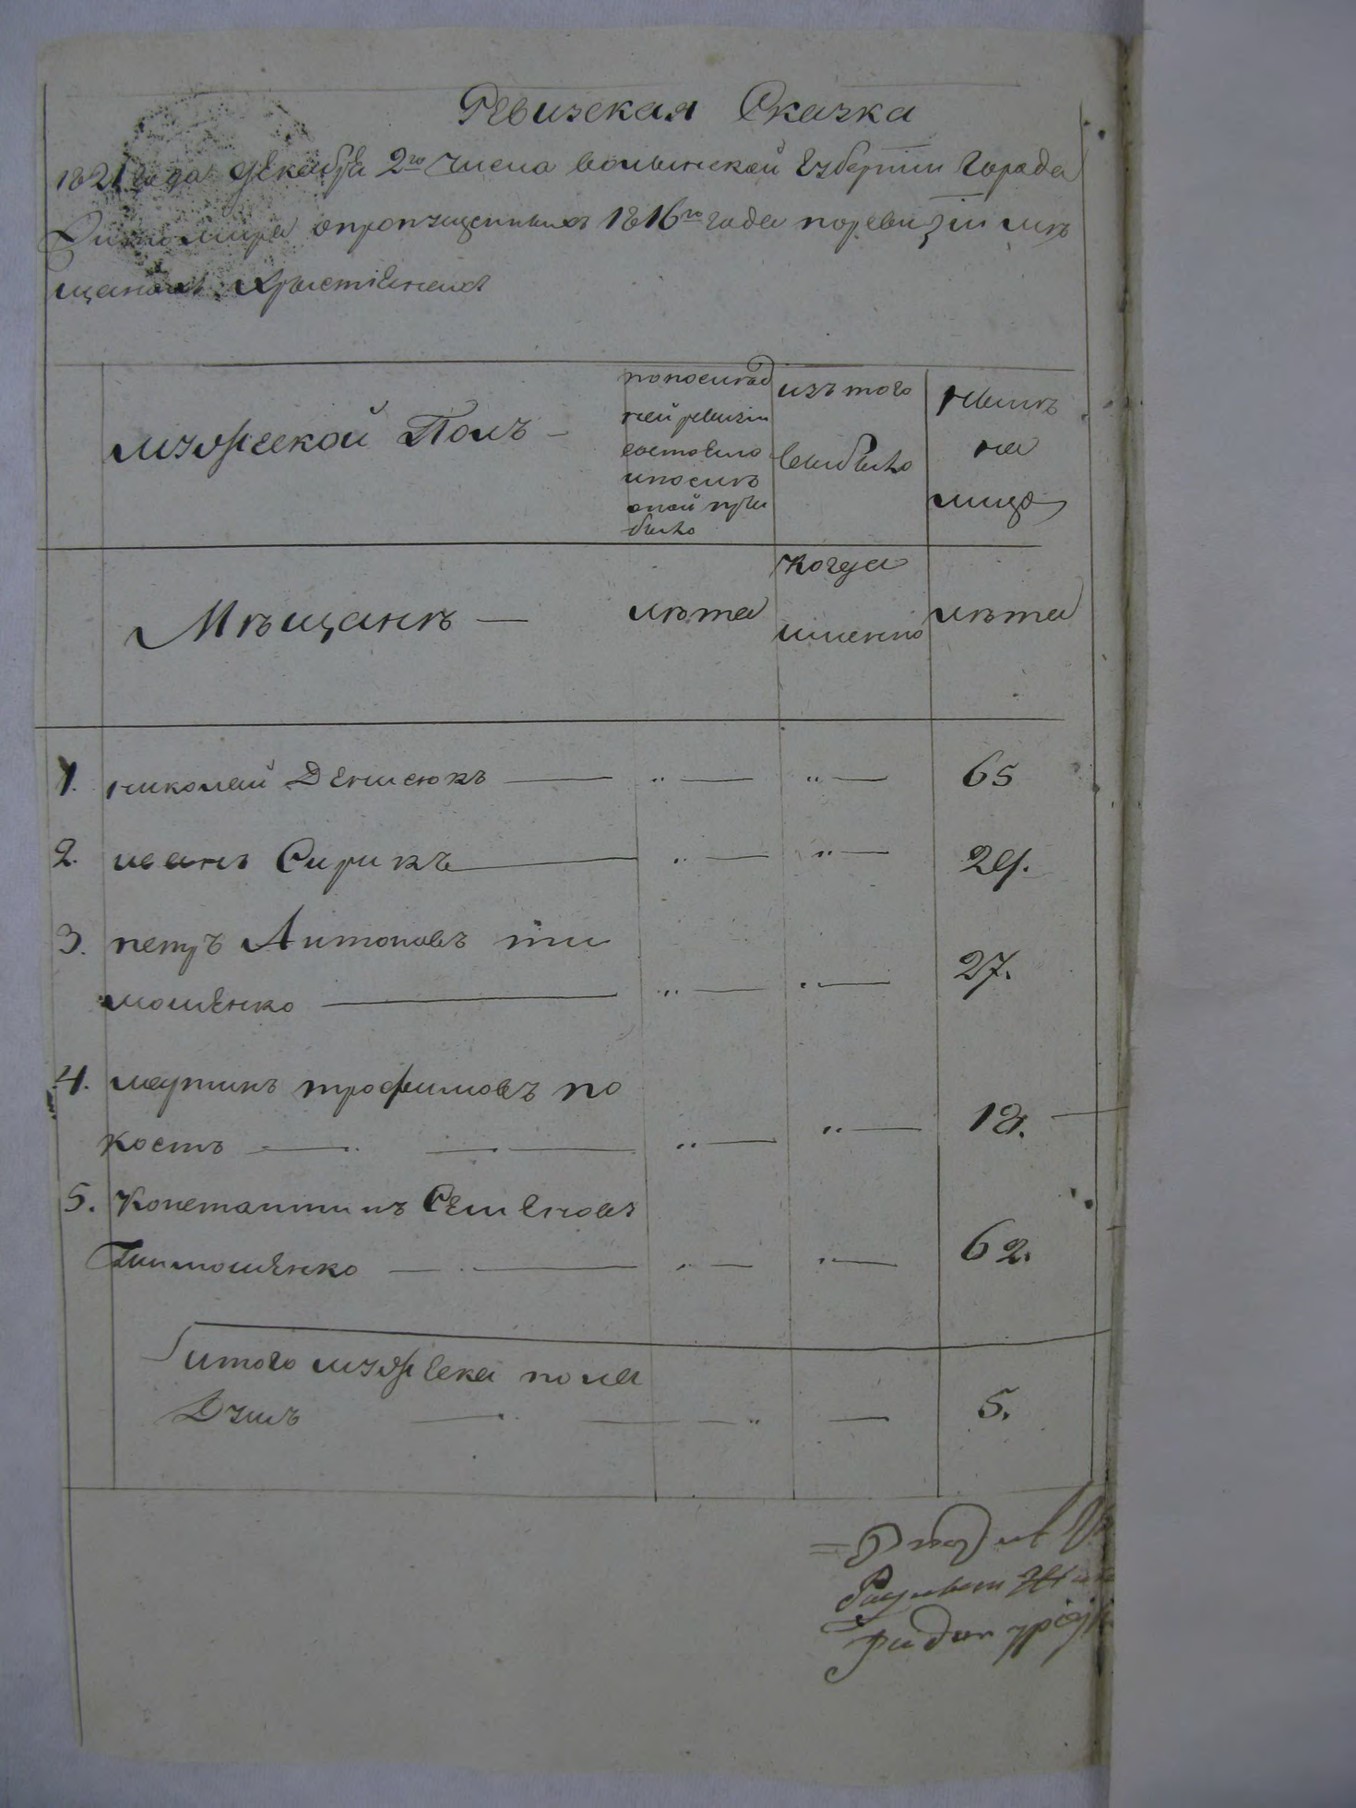 Ревизская Сказка
1821 года Декабря 2го числа волынской Губернии Города
Житомира опропущенныхъ 1816го года поревизіи мѣ
щанахъ Християнахъ
мужеской Полъ —
попослѣд
ней ревизіи
состояло
ипослѣ
оной при
было
изъ того
выбыло
нынѣ
на
лицо
Мѣщанѣ —
лѣта
когда
именно
лѣта
1. николай Денисюкъ — „ — „ — 65
2. иванъ Сирикъ — „ — „ — 24.
3. петръ Антоновъ ти
мошенко — „ — „ — 27.
4. мартинъ трофимовъ по
кость — „ — „ — 18.
5. Константинъ Семеновъ
Тимошенко — „ — „ — 62.
итого мужеска пола
Душъ — „ — 5.